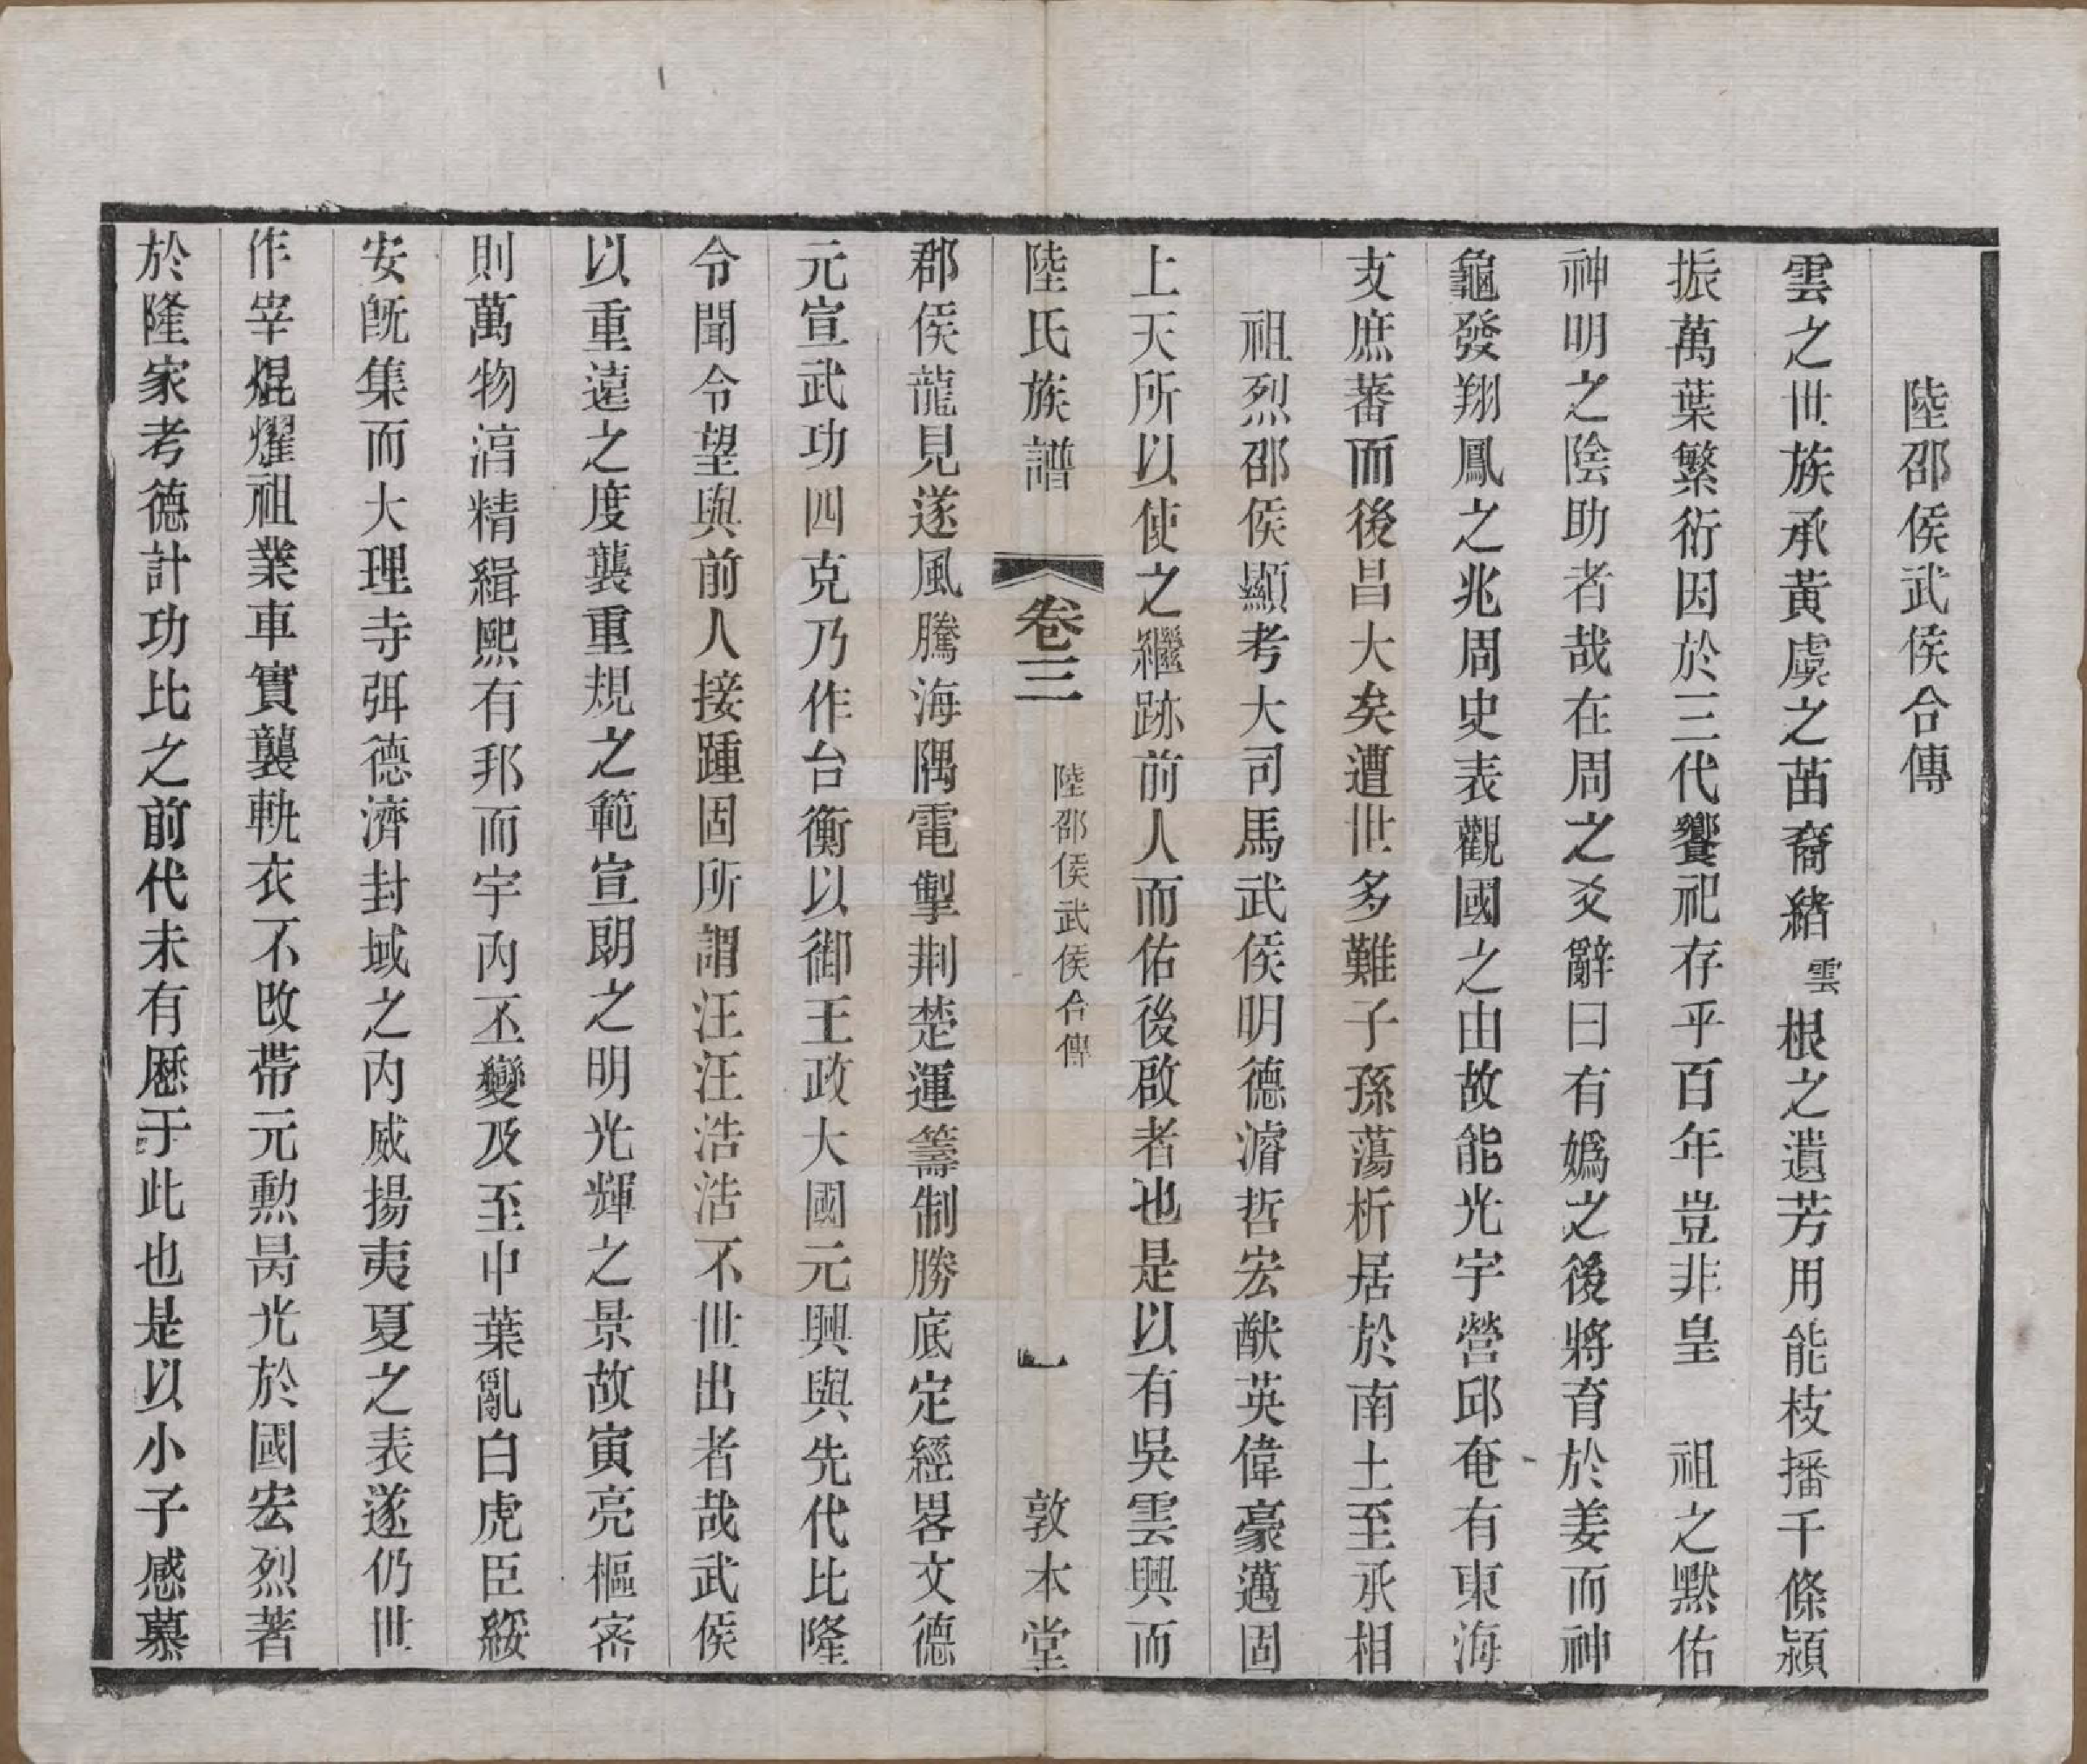 陸邵侯武侯合傳
雲之世族承黃虞之苗裔緒雲根之遺芳用能枝播千條潁
振萬葉繁衍因於三代饗祀存乎百年豈非皇　祖之默佑
神明之陰助者哉在周之爻辭曰有嬀之後將育於姜而神
龜發翔鳳之兆周史表觀國之由故能光宇營邱奄有東海
支庶蕃而後昌大矣遭世多難子孫蕩析居於南土至承相
祖烈邵侯顯考大司馬武侯明德濬哲宏猷英偉豪邁固
上天所以使之繼跡前人而佑後啟者也是以有吳雲興而
陸氏族譜　卷三　陸邵侯武侯合傳　敦本堂
郡侯龍見遂風騰海隅電掣荆楚運籌制勝底定經畧文德
元宣武功四克乃作台衡以御王政大國元興與先代比隆
令聞令望與前人接踵固所謂汪汪浩浩不世出者哉武侯
以重遠之度襲重規之範宣朗之明光輝之景故寅亮樞密
則萬物湻精緝熙有邦而宇內丕變及至中葉亂白虎臣綏
安旣集而大理寺弭德濟封域之內威揚夷夏之表遂仍世
作宰焜燿祖業車實襲軌衣不改帶元勲昺光於國宏烈著
於隆家考德計功比之前代未有歷于此也是以小子感慕